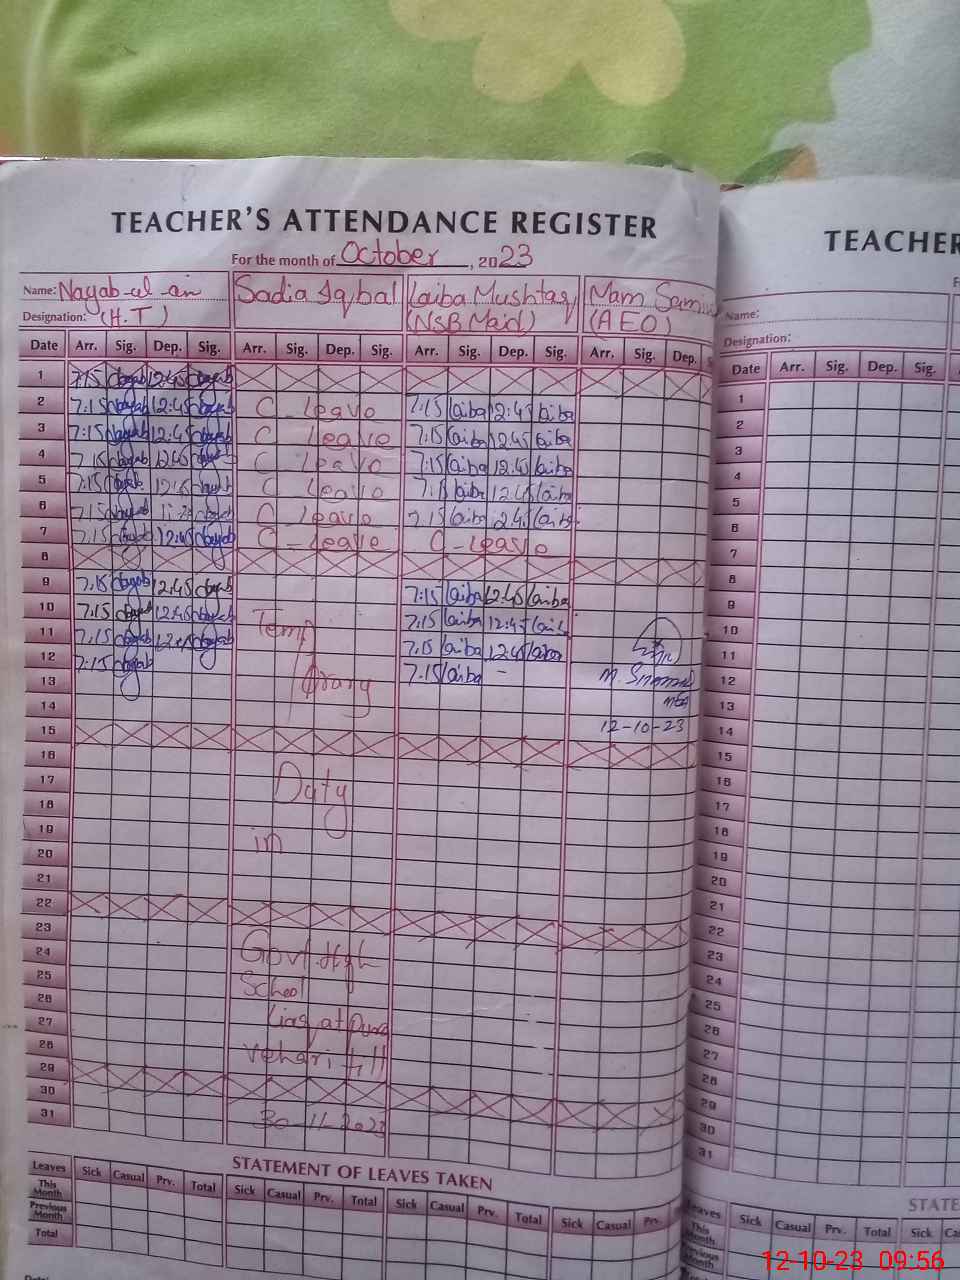 TEACHER'S ATTENDANCE REGISTER
For the month of October, 2023
Name: Nayab-ul-ain Sadia Iqbal Laiba Mushtaq Mam
Designation: (H.T) (NSB Maid) (AEO)
Date Arr. Sig. Dep. Sig. Arr. Sig. Dep. Sig. Arr. Sig. Dep. Sig. Arr. Sig. Dep.
1 7:15 Nayab 12:45 Nayab
2 7:15 Nayab 12:45 Nayab C-leave 7:15 laiba 12:45 laiba
3 7:15 Nayab 12:45 Nayab C leave 7:15 laiba 12:45 laiba
4 7:15 Nayab 12:45 C leave 7:15 laiba 12:45 laiba
5 7:15 12:45 C leave 7:15 laiba 12:45 laiba
6 7:15 Nayab C leave 7:15 laiba 12:45 laiba
7 7:15 12:45 Nayab C-leave C-leave
8
9 7:15 Nayab 12:45 Nayab 7:15 laiba 12:45 laiba
10 7:15 Nayab 12:45 Nayab Temp 7:15 laiba 12:45
11 7:15 Nayab 12:45 Nayab 7:15 laiba 12:45 laiba
12 7:15 Nayab 7:15 laiba -
13 orary
14
12-10-23
15
16
17 Duty
18
19 in
20
21
22
23
24 Govt High
25 School
26
27
28 vehari till
29
30
31 30-11-2023
STATEMENT OF LEAVES TAKEN
Leaves Sick Casual Prv. Total Sick Casual Prv. Total Sick Casual Prv. Total Sick Casual Prv.
This Month
Previous Month
Total
TEACHER
Name:
Designation:
Date Arr. Sig. Dep. Sig.
1
2
3
4
5
6
7
8
9
10
11
12
13
14
15
16
17
18
19
20
21
22
23
24
25
26
27
28
29
30
31
STATE
Leaves Sick Casual Prv. Total Sick
This Month
Previous Month
12-10-23 09:56